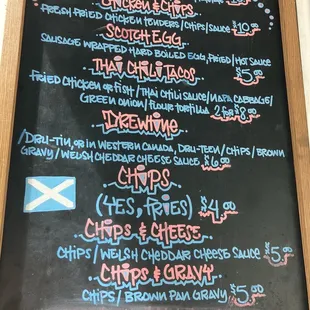 CHICKEN & CHIPS
FRESH FRIED CHICKEN TENDERS/CHIPS/SAUCE $10.00
SCOTCH EGG
SAUSAGE WRAPPED HARD BOILED EGG, FRIED/HOT SAUCE
THAI CHILI TACOS $5.00
FRIED CHICKEN OR FISH/THAI CHILI SAUCE/NAPA CABBAGE/
GREEN ONION/FLOUR TORTILLA 2 FOR $8.00
DREWTINE
/DRU-TIN, OR IN WESTERN CANADA, DRU-TEEN/CHIPS/BROWN
GRAVY/WELSH CHEDDAR CHEESE SAUCE $6.00
CHIPS
(YES, FRIES) $4.00
CHIPS & CHEESE
CHIPS/WELSH CHEDDAR CHEESE SAUCE $5.00
CHIPS & GRAVY
CHIPS/BROWN PAN GRAVY $5.00